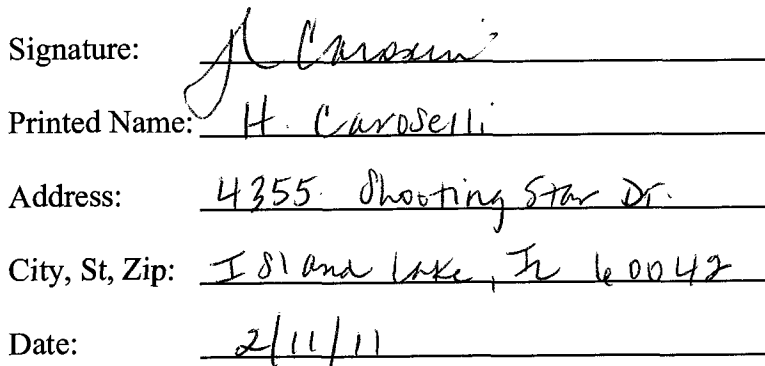 Signature: H Caroselli
Printed Name: H. Caroselli
Address: 4355 Shooting Star Dr.
City, St, Zip: Island Lake, IL 60042
Date: 2/11/11